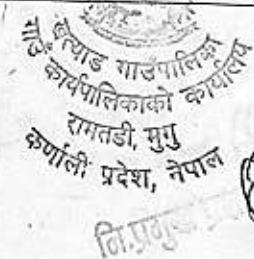 खत्याड गाउँपालिका
गाउँ कार्यपालिकाको कार्यालय
रामतडी, मुगु
कर्णाली प्रदेश, नेपाल
नि.प्रमुख